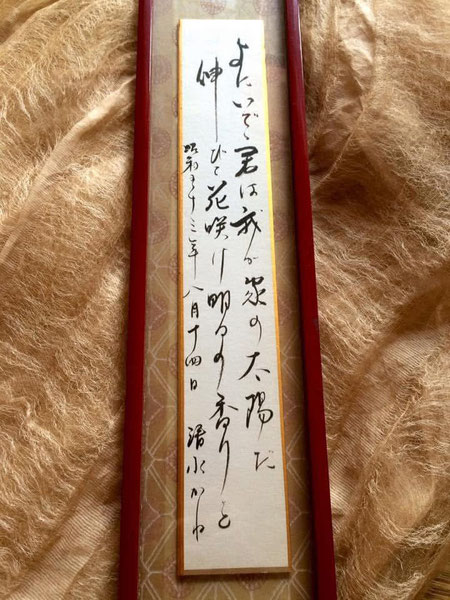 よにいでゝ君は我が家の太陽だ
伸びて花咲け明るの香りと
昭和五十三年八月十四日 清水かね